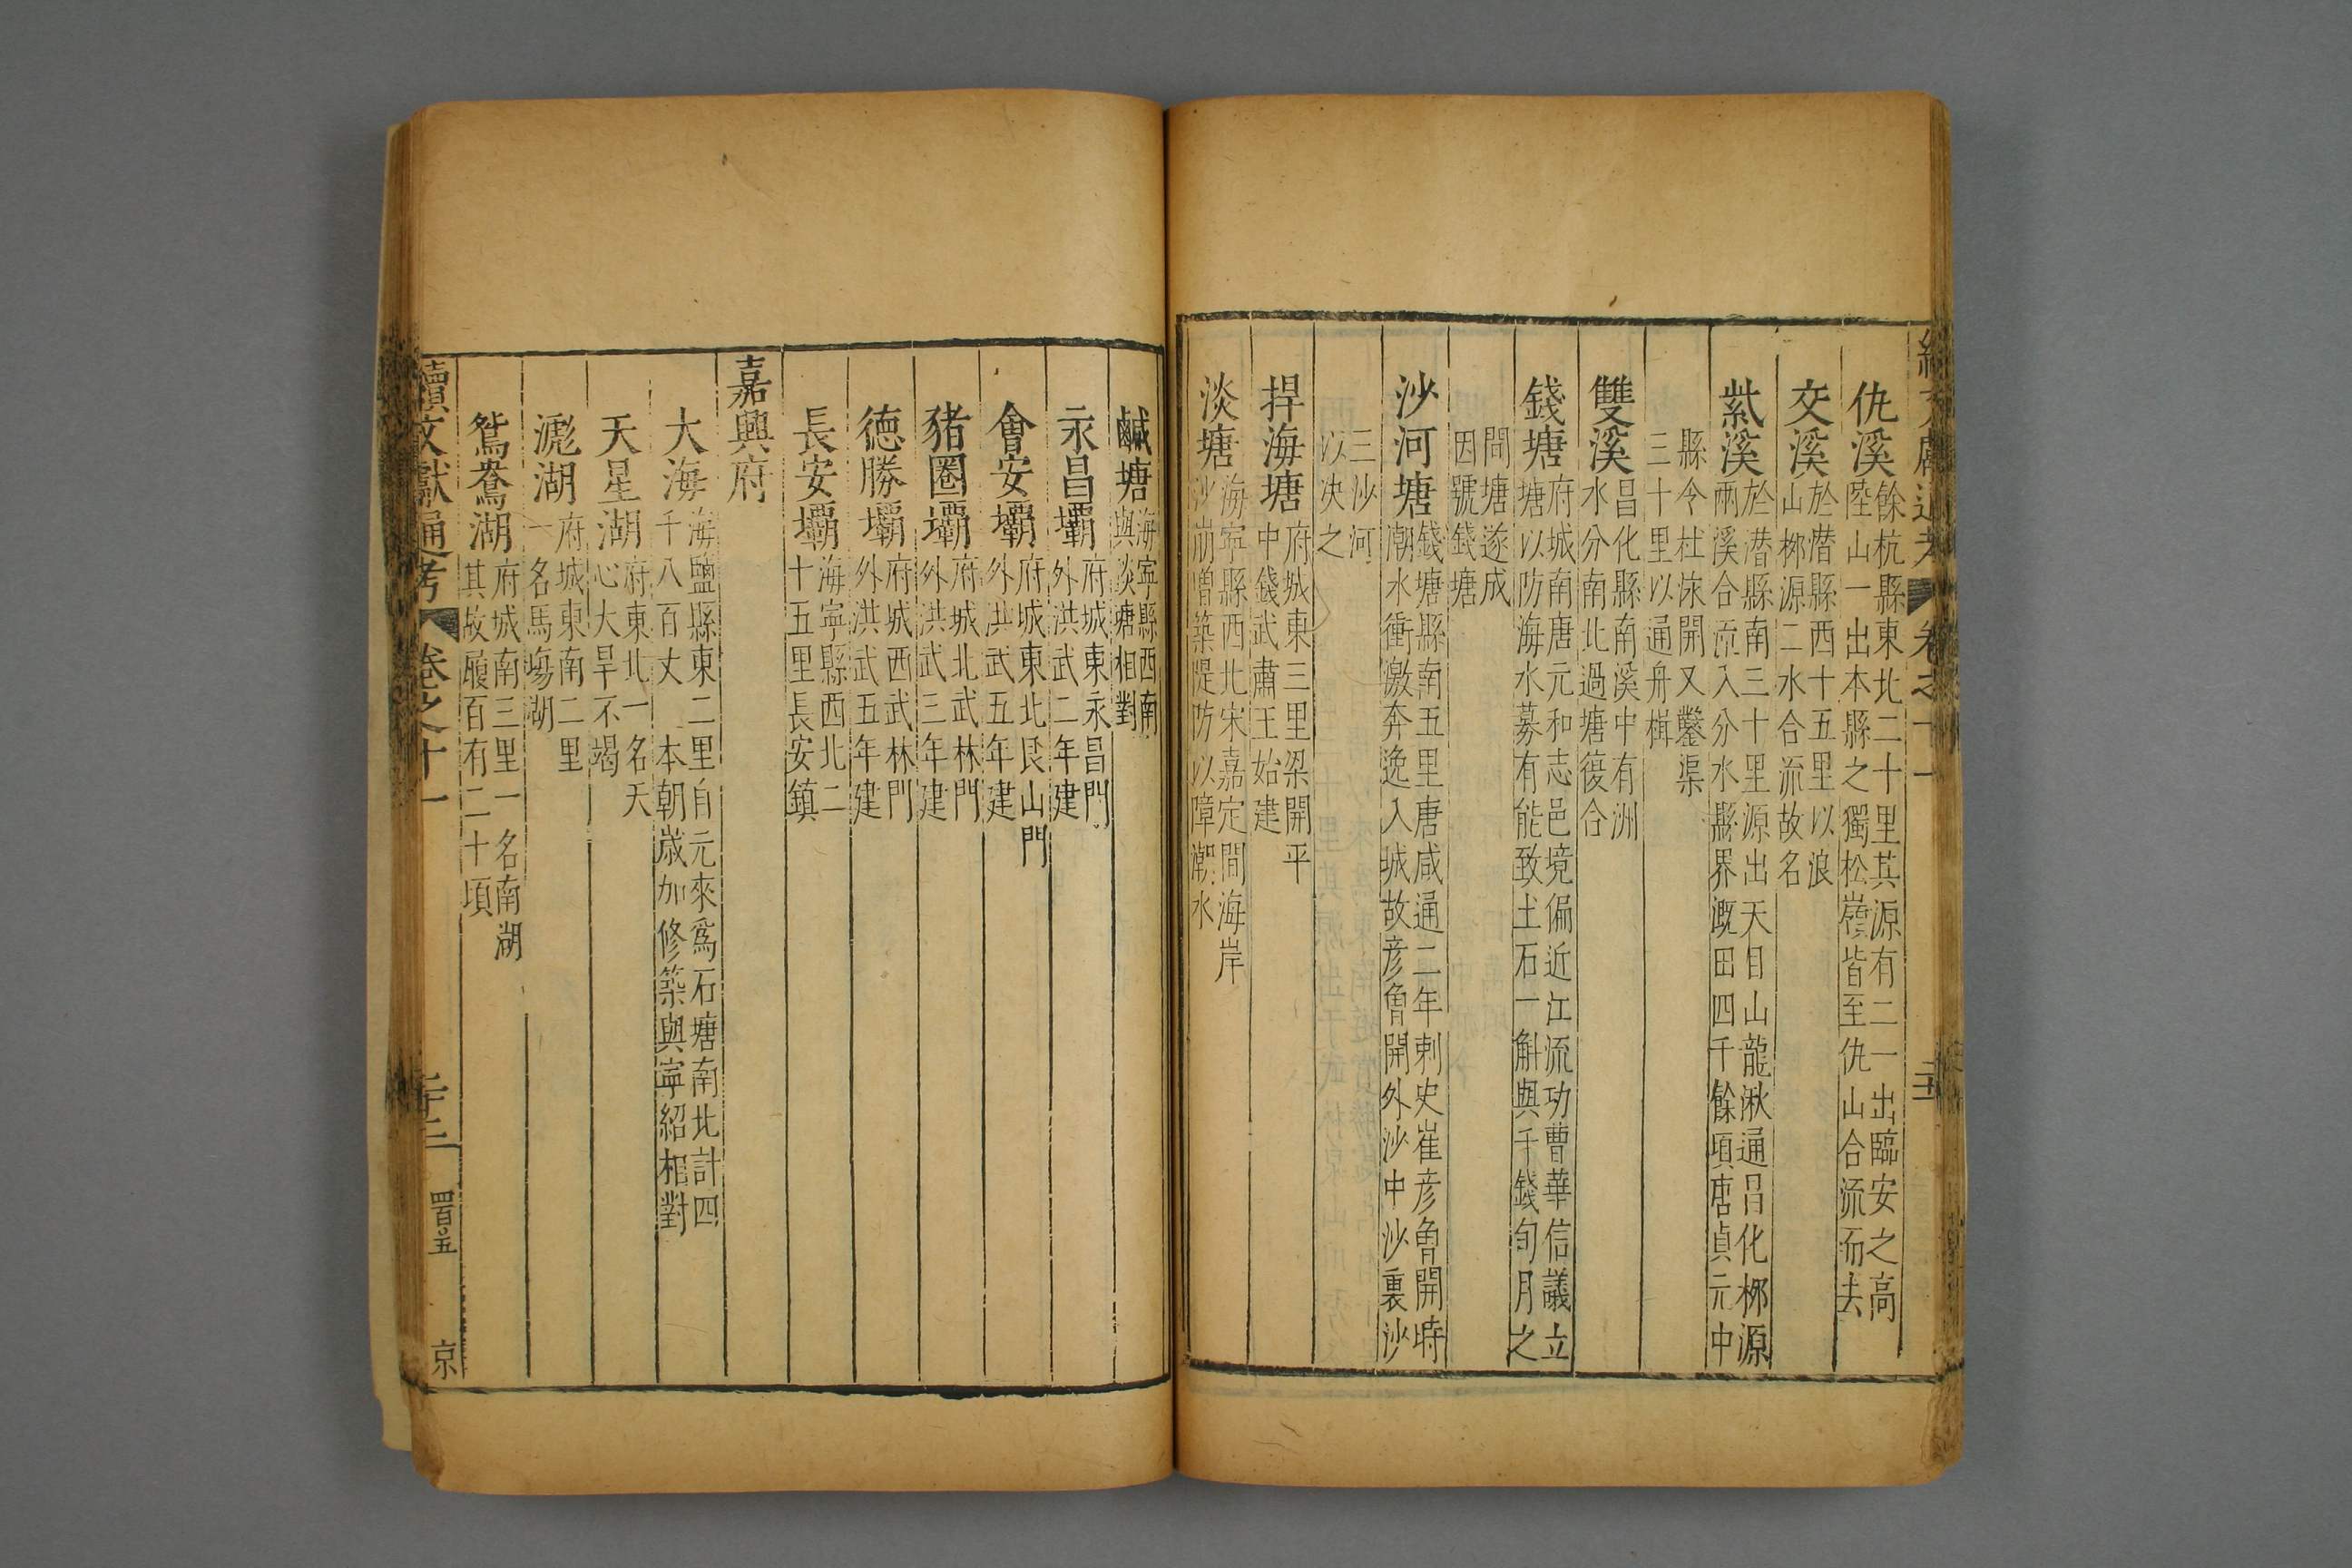 仇溪餘杭縣東北二十里其源有二一出臨安之高
陸山一出本縣之獨松嶺皆至仇山合流而去
交溪於潛縣西十五里以浪
山桞源二水合流故名
紫溪於潛縣南三十里源出天目山龍湫通昌化桞源
兩溪合流入分水縣界溉田四千餘頃唐貞元中
縣令杜泳開又鑿渠
三十里以通舟楫
雙溪昌化縣南溪中有洲
水分南北過塘復合
錢塘府城南唐元和志邑境偏近江流功曹華信議立
塘以防海水募有能致土石一斛與千錢旬月之
間塘遂成
因號錢塘
沙河塘錢塘縣南五里唐咸通二年刺史崔彦魯開時
潮水衝激奔逸入城故彦魯開外沙中沙裏沙
三沙河
以决之
捍海塘府城東三里梁開平
中錢武肅王始建
淡塘海寧縣西北宋嘉定間海岸
沙崩增築隄防以障潮水
鹹塘海寧縣西南
與淡塘相對
永昌壩府城東永昌門
外洪武二年建
會安壩府城東北艮山門
外洪武五年建
猪圈壩府城北武林門
外洪武三年建
德勝壩府城西武林門
外洪武五年建
長安壩海寧縣西北二
十五里長安鎮
嘉興府
大海海鹽縣東二里自元來爲石塘南北計四
千八百丈 本朝歲加修築與寧紹相對
天星湖府東北一名天
心大旱不竭
滮湖府城東南二里
一名馬塲湖
鴛鴦湖府城南三里一名南湖
其故履百有二十頃
續文獻通考 卷之十一
四百五
京